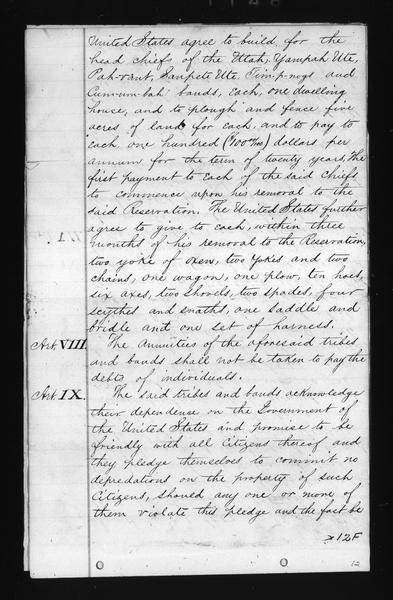 United States agree to build for the
head chiefs of the Utah, Yampah Ute,
Pah-vant, Sanpete Ute, Tim-p-nogs and
Cum-um-bah bands, each, one dwelling
house, and to plough and fence five
acres of land for each, and to pay to
each one hundred ($100 ) dollars per
annum for the term of twenty years, the
first payment to each of the said Chiefs
to commence upon his removal to the
said Reservation. The United States further
agree to give to each, within three
months of his removal to the Reservation,
two yoke of oxen, two yokes and two
chains, one wagon, one plow, ten hoes,
six axes, two shovels, two spades, four
scythes and snaths, one saddle and
bridle and one set of harness.
Art. VIII. The Annuities of the aforesaid tribes
and bands shall not be taken to pay the
debts of individuals.
Art. IX. The said tribes and bands acknowledge
their dependense on the Government of
the United States and promise to be
friendly with all Citizens thereof and
they pledge themselves to commit no
depredations on the property of such
Citizens, should any one or more of
them violate this pledge and the fact be
12F
12